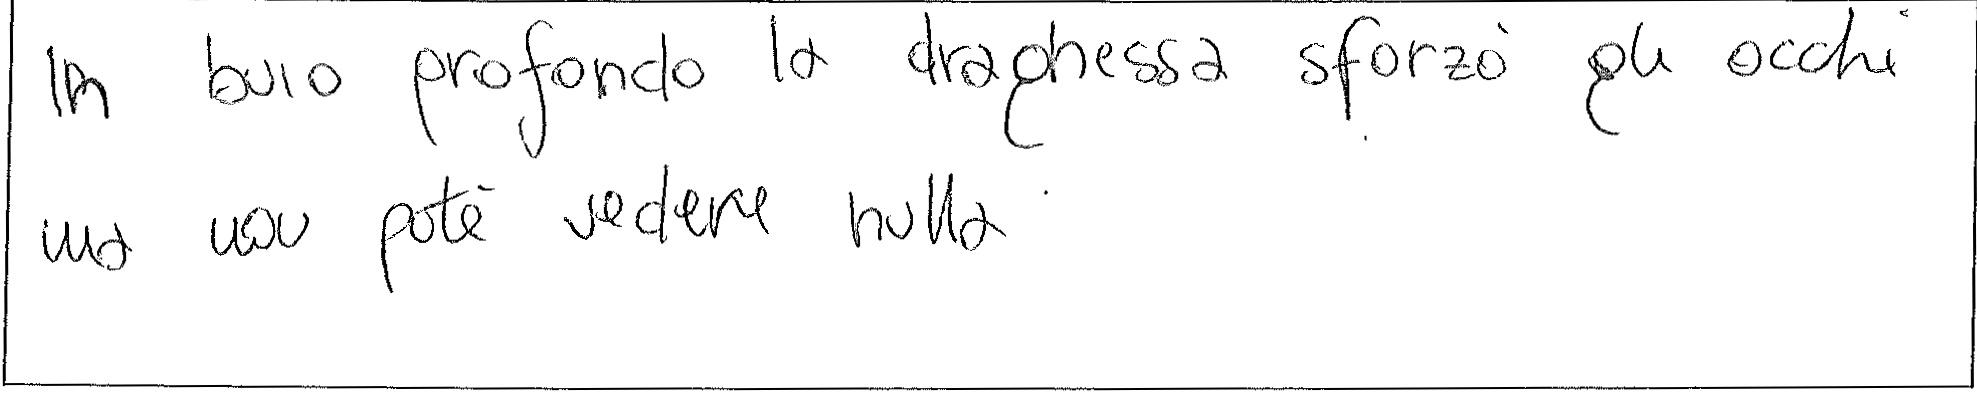 In buio profondo la draghessa sforzò gli occhi
ma non poté vedere nulla.